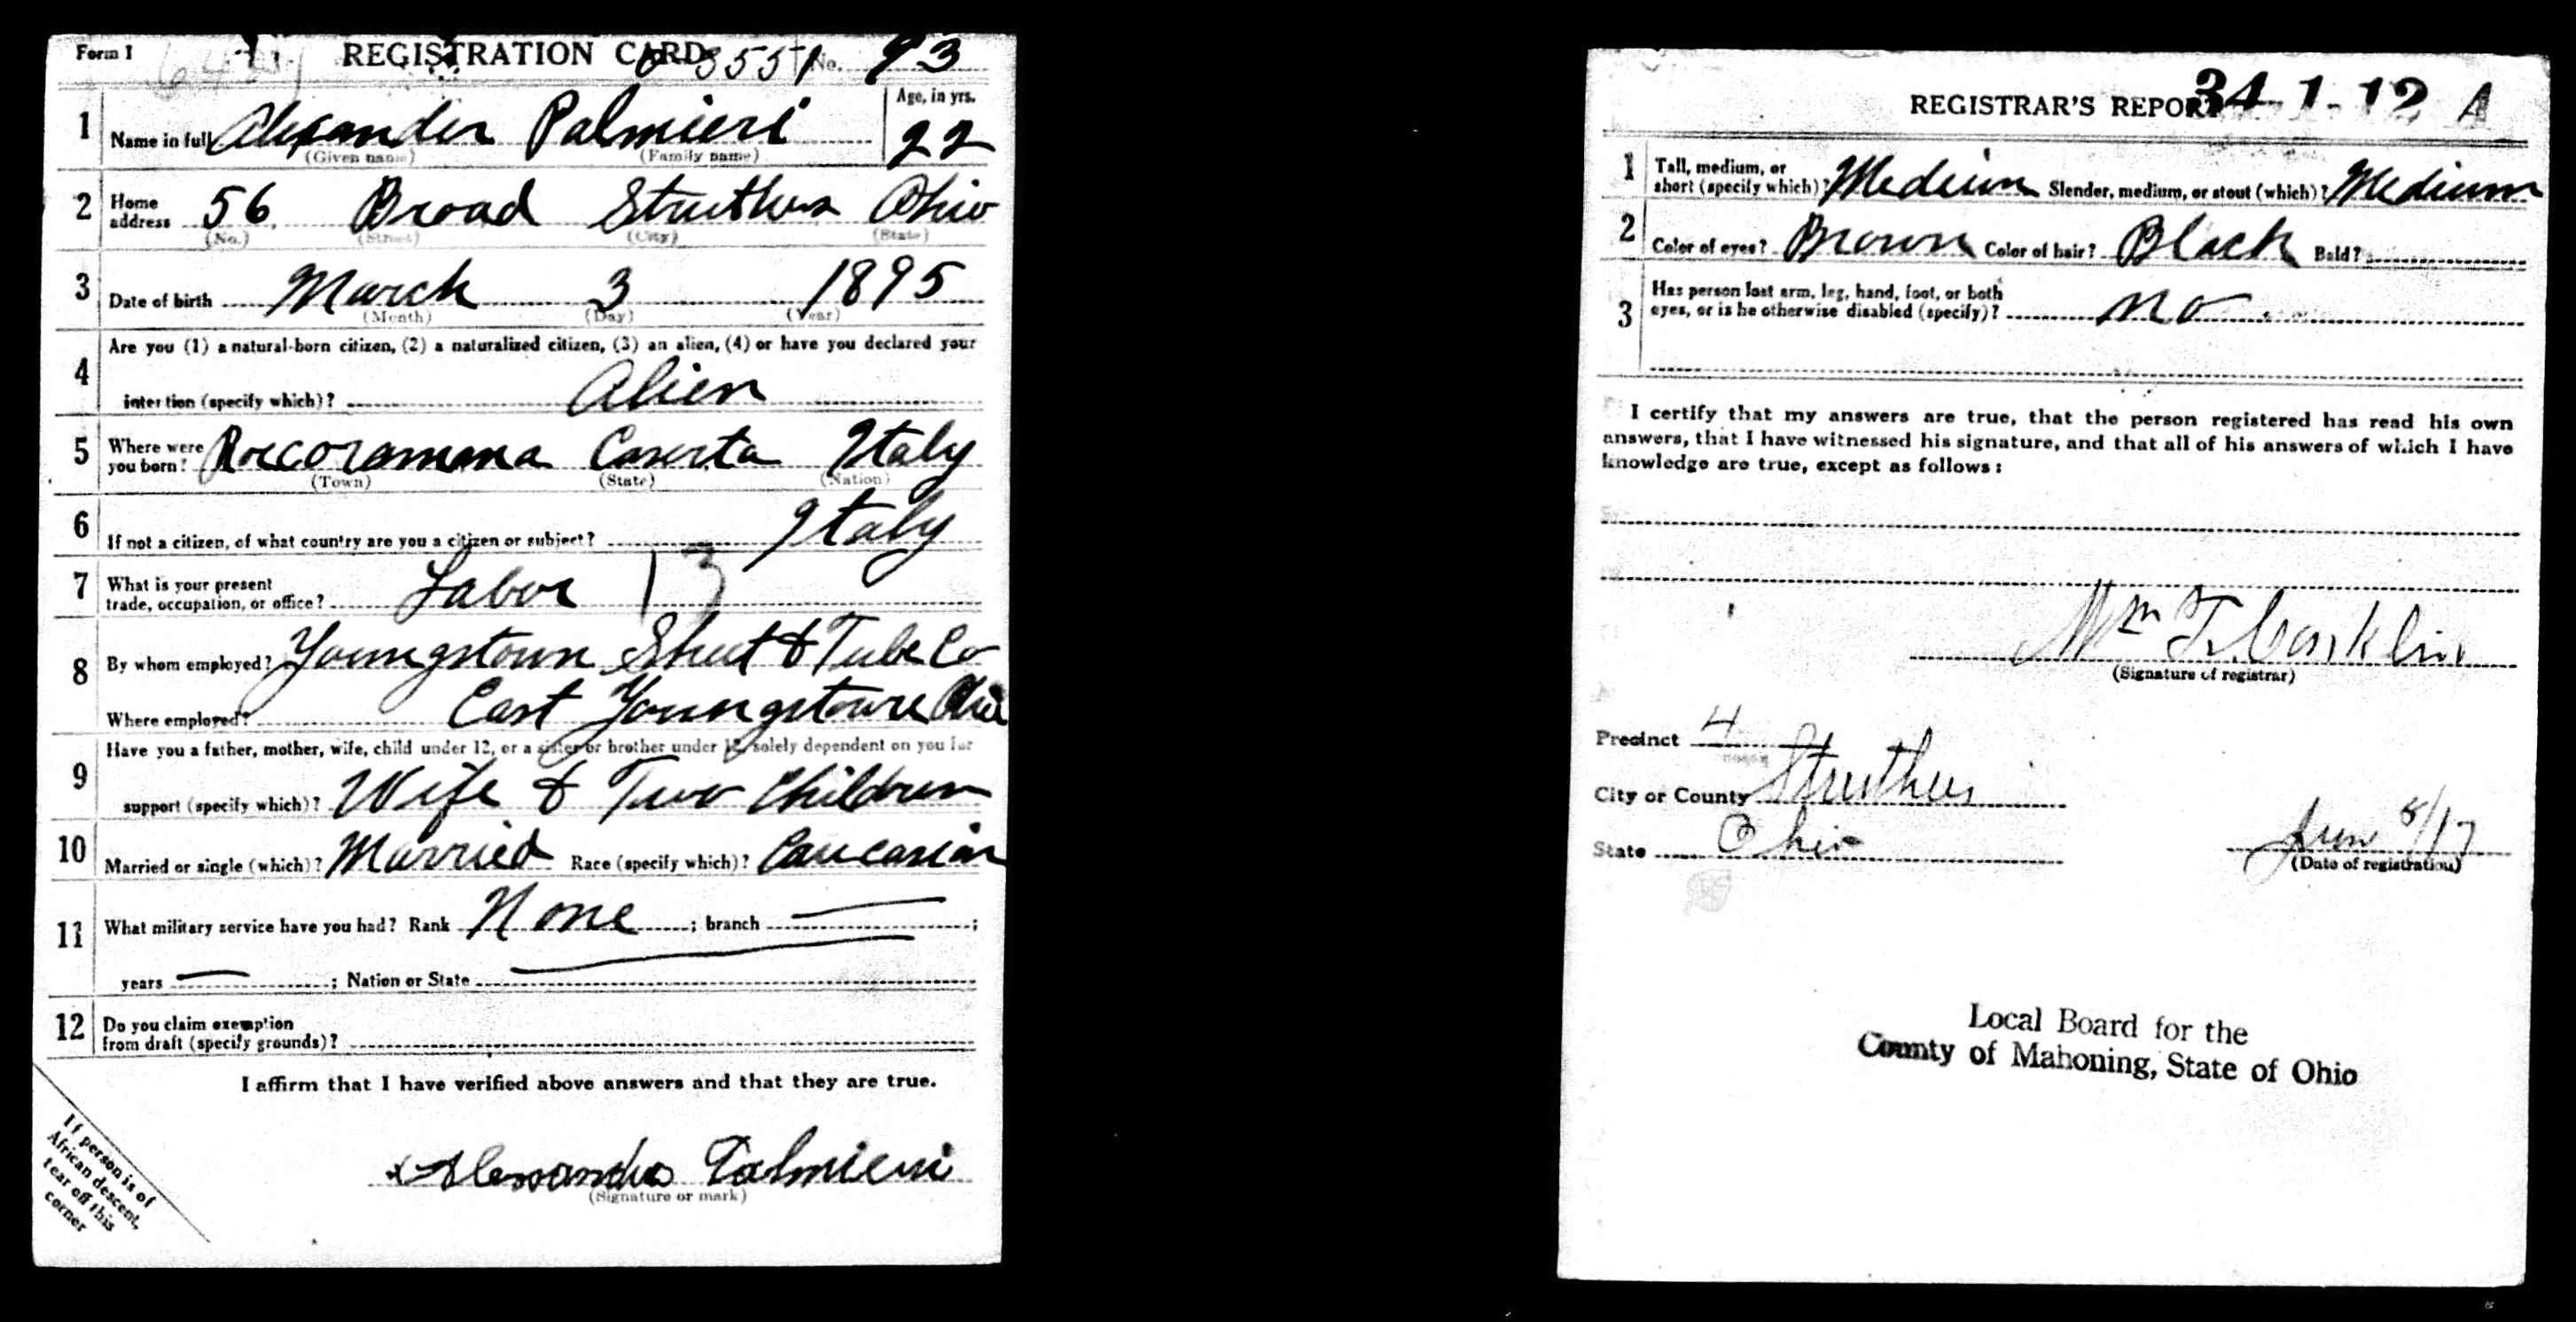 Form 1 REGISTRATION CARD 3551 No. 93
1 Name in full Alexander Palmieri Age, in yrs. 22
(Given name) (Family name)
2 Home address 56 Broad Struthers Ohio
(No.) (Street) (City) (State)
3 Date of birth March 3 1895
(Month) (Day) (Year)
4 Are you (1) a natural-born citizen, (2) a naturalized citizen, (3) an alien, (4) or have you declared your
intention (specify which)? Alien
5 Where were you born? Roccoromana Caserta Italy
(Town) (State) (Nation)
6 If not a citizen, of what country are you a citizen or subject? Italy
7 What is your present
trade, occupation, or office? Labor 13
8 By whom employed? Youngstown Sheet & Tube Co
Where employed? East Youngstown Ohio
9 Have you a father, mother, wife, child under 12, or a sister or brother under 12, solely dependent on you for
support (specify which)? Wife & Two Children
10 Married or single (which)? Married Race (specify which)? Caucasian
11 What military service have you had? Rank None ; branch ;
years ; Nation or State
12 Do you claim exemption
from draft (specify grounds)?
I affirm that I have verified above answers and that they are true.
Alessandro Palmieri
(Signature or mark)
If person is of
African descent,
tear off this
corner
REGISTRAR'S REPORT 34-1-12 A
1 Tall, medium, or
short (specify which)? Medium Slender, medium, or stout (which)? Medium
2 Color of eyes? Brown Color of hair? Black Bald?
3 Has person lost arm, leg, hand, foot, or both
eyes, or is he otherwise disabled (specify)? no
I certify that my answers are true, that the person registered has read his own
answers, that I have witnessed his signature, and that all of his answers of which I have
knowledge are true, except as follows:
Wm T. Conklin
(Signature of registrar)
Precinct 4
City or County Struthers
State Ohio Jun 8/17
(Date of registration)
Local Board for the
County of Mahoning, State of Ohio